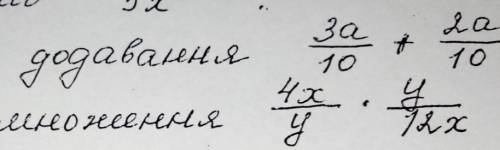 9x
додавання 3a/10 + 2a/10
множення 4x/y · y/12x